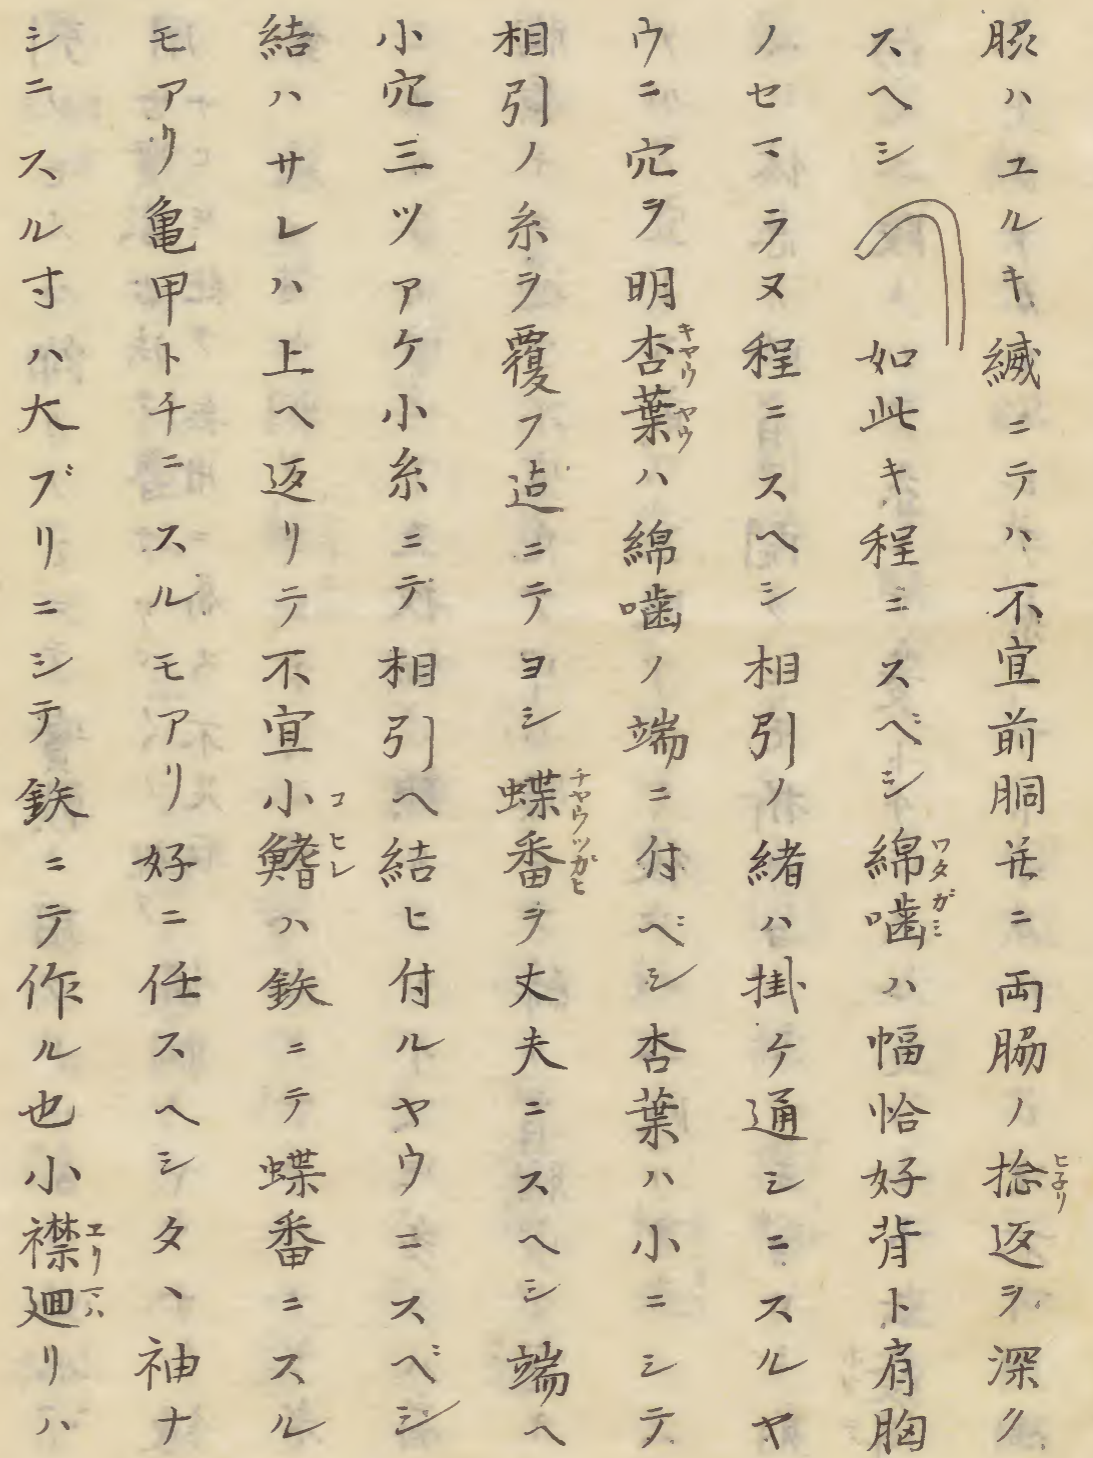 脵ハユルキ縅ニテハ不宜前胴并ニ両脇ノ捻返ヲ深ク
スヘシ如此キ程ニスベシ綿噛ハ幅恰好背ト肩胸
ノセマラヌ程ニスヘシ相引ノ緒ハ掛ケ通シニスルヤ
ウニ穴ヲ明杏葉ハ綿噛ノ端ニ付ベシ杏葉ハ小ニシテ
相引ノ糸ヲ覆フ迠ニテヨシ蝶番ヲ丈夫ニスヘシ端ヘ
小穴三ツアケ小糸ニテ相引ヘ結ヒ付ルヤウニスベシ
結ハサレハ上ヘ返リテ不宜小鰭ハ鉄ニテ蝶番ニスル
モアリ亀甲トチニスルモアリ好ニ任スヘシタヽ袖ナ
シニスル寸ハ大ブリニシテ鉄ニテ作ル也小襟廻リハ